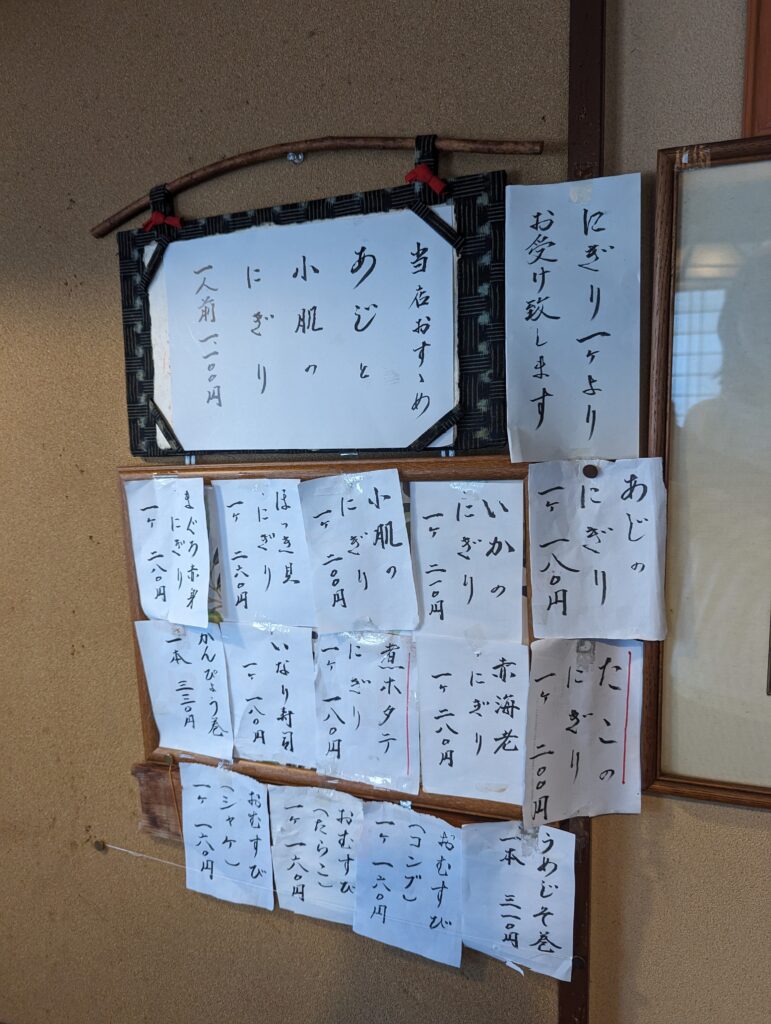 にぎり一ヶより
お受け致します
当店おすゝめ
あじと
小肌の
にぎり
一人前 一、一〇〇円
あじの
にぎり
一ヶ 一八〇円
いかの
にぎり
一ヶ 二一〇円
小肌の
にぎり
一ヶ 二〇〇円
ほっき貝
にぎり
一ヶ 二六〇円
まぐろ赤身
にぎり
一ヶ 二八〇円
たこの
にぎり
一ヶ 二〇〇円
赤海老
にぎり
一ヶ 二八〇円
煮ホタテ
にぎり
一ヶ 一八〇円
いなり寿司
一ヶ 一八〇円
かんぴょう巻
一本 三三〇円
うめじそ巻
一本 三一〇円
おむすび
(コンブ)
一ヶ 一六〇円
おむすび
(たらこ)
一ヶ 一六〇円
おむすび
(シャケ)
一ヶ 一六〇円